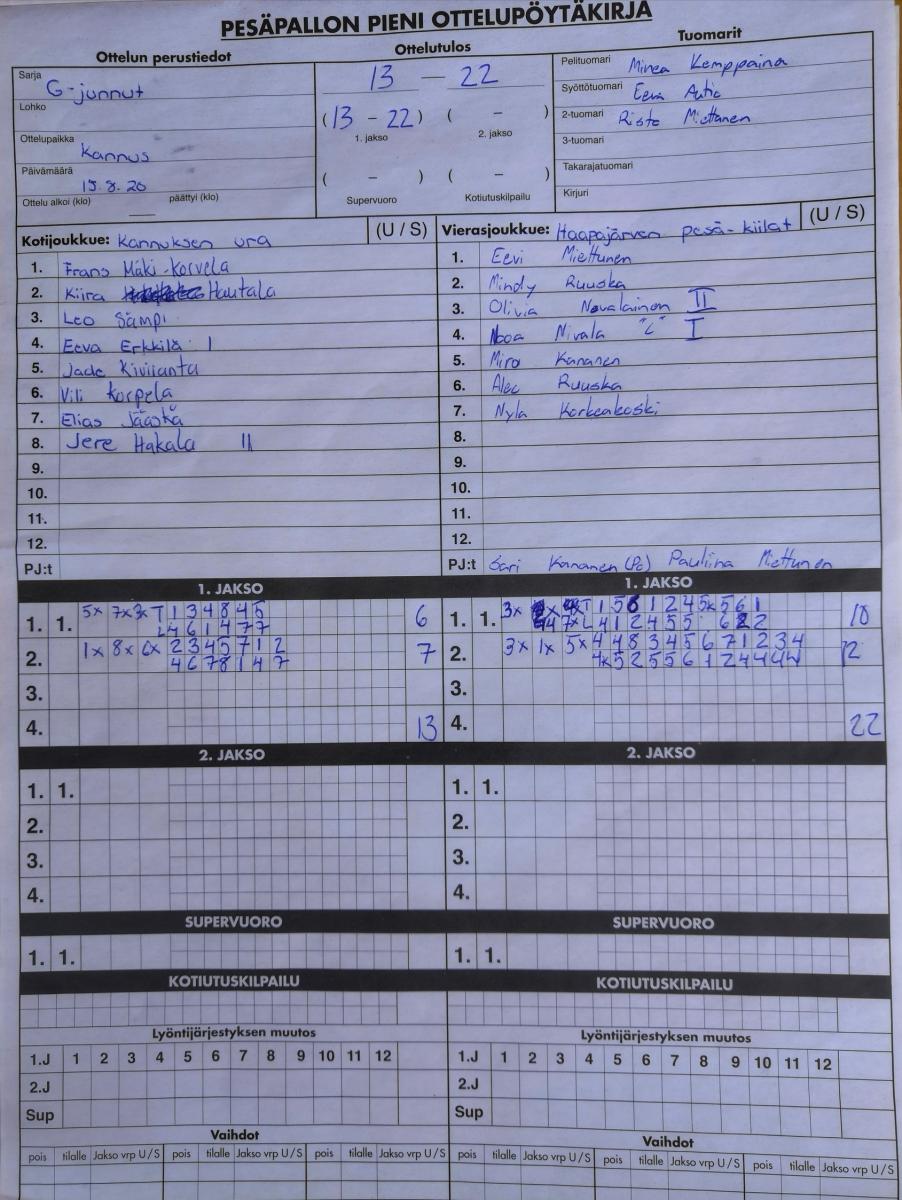 PESÄPALLON PIENI OTTELUPÖYTÄKIRJA
Ottelun perustiedot
Sarja G-junnut
Lohko
Ottelupaikka Kannus
Päivämäärä 15.8.20
Ottelu alkoi (klo) päättyi (klo)
Ottelutulos
13 – 22
(13 – 22) ( – )
1. jakso 2. jakso
( – ) ( – )
Supervuoro Kotiutuskilpailu
Tuomarit
Pelituomari Minea Kemppaina
Syöttötuomari Eeva Autio
2-tuomari Risto Miettanen
3-tuomari
Takarajatuomari
Kirjuri
Kotijoukkue: Kannuksen ura (U / S)
1. Frans Mäki-Korvela
2. Kiira Hautala
3. Leo Sämpi
4. Eeva Erkkilä I
5. Jade Kiviranta
6. Vili Korpela
7. Elias Jääskä
8. Jere Hakala II
9.
10.
11.
12.
PJ:t
Vierasjoukkue: Haapajärven pesä-kiilat (U / S)
1. Eevi Miettunen
2. Mindy Ruuska
3. Olivia Novalainen II
4. Nooa Nivala "C" I
5. Miro Kananen
6. Alec Ruuska
7. Nyla Korkeakoski
8.
9.
10.
11.
12.
PJ:t Sari Kananen (Pc) Pauliina Miettunen
1. JAKSO
1. 1. 5x 7x 3x T 1 3 4 8 4 5 6
L 4 6 1 4 7 7
2. 1x 8x 6x 2 3 4 5 7 1 2 7
4 6 7 8 1 4 7
3.
4. 13
1. JAKSO
1. 1. 3x T 1 5 6 1 2 4 5x 5 6 1 10
7x L 4 1 2 4 5 5 6 2 2
2. 3x 1x 5x 4 4 8 3 4 5 6 7 1 2 3 4 12
4x 5 2 5 5 6 1 2 4 4 4 4
3.
4. 22
2. JAKSO
1. 1.
2.
3.
4.
2. JAKSO
1. 1.
2.
3.
4.
SUPERVUORO
1. 1.
SUPERVUORO
1. 1.
KOTIUTUSKILPAILU
KOTIUTUSKILPAILU
Lyöntijärjestyksen muutos
1.J 1 2 3 4 5 6 7 8 9 10 11 12
2.J
Sup
Lyöntijärjestyksen muutos
1.J 1 2 3 4 5 6 7 8 9 10 11 12
2.J
Sup
Vaihdot
pois tilalle Jakso vrp U / S pois tilalle Jakso vrp U / S pois tilalle Jakso vrp U / S
Vaihdot
pois tilalle Jakso vrp U / S pois tilalle Jakso vrp U / S pois tilalle Jakso vrp U / S